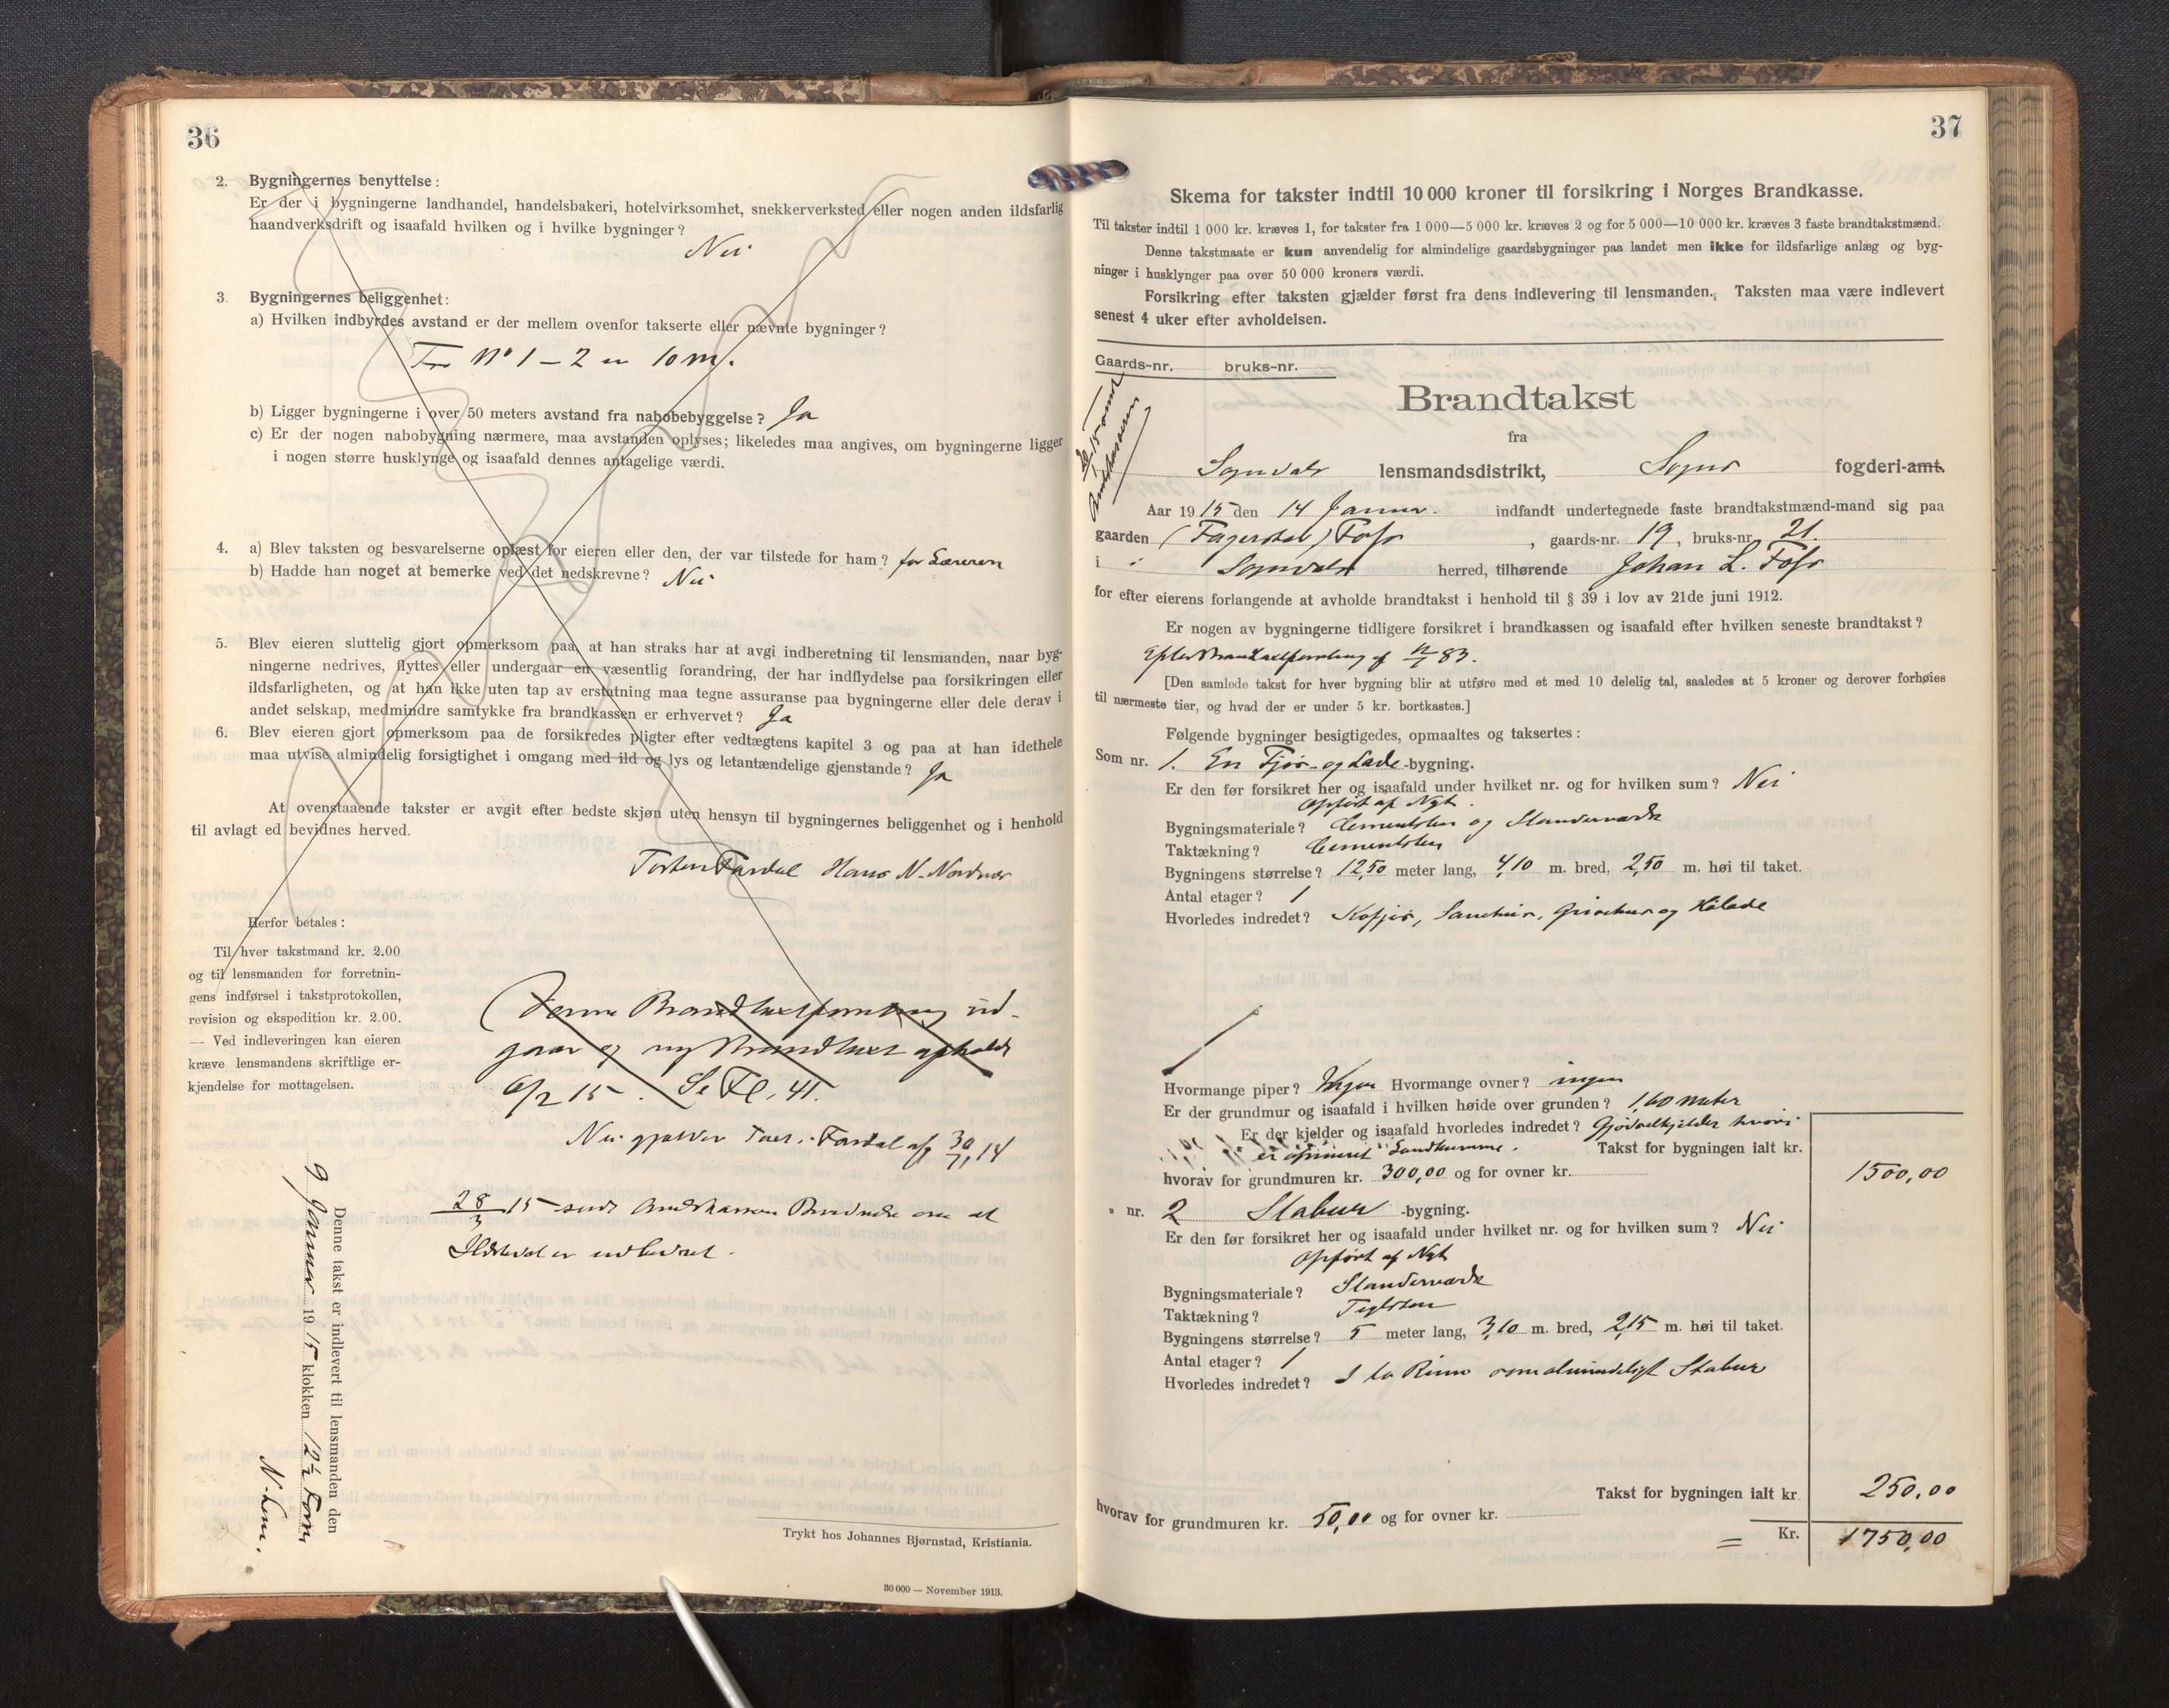 36
2. Bygningernes benyttelse:
Er der i bygningerne landhandel, handelsbakeri, hotelvirksomhet, snekkerverksted eller nogen anden ildsfarlig
haandverksdrift og isaafald hvilken og i hvilke bygninger?
Nei
3. Bygningernes beliggenhet:
a) Hvilken indbyrdes avstand er der mellem ovenfor takserte eller nævnte bygninger?
Fra No 1 - 2 er 10 m.
b) Ligger bygningerne i over 50 meters avstand fra nabobebyggelse? Ja
c) Er der nogen nabobygning nærmere, maa avstanden oplyses; likeledes maa angives, om bygningerne ligger
i nogen større husklynge og isaafald dennes antagelige værdi.
4. a) Blev taksten og besvarelserne oplæst for eieren eller den, der var tilstede for ham? for
b) Hadde han noget at bemerke ved det nedskrevne? Nei
5. Blev eieren sluttelig gjort opmerksom paa, at han straks har at avgi indberetning til lensmanden, naar byg-
ningerne nedrives, flyttes eller undergaar en væsentlig forandring, der har indflydelse paa forsikringen eller
ildsfarligheten, og at han ikke uten tap av erstatning maa tegne assuranse paa bygningerne eller dele derav i
andet selskap, medmindre samtykke fra brandkassen er erhvervet? Ja
6. Blev eieren gjort opmerksom paa de forsikredes pligter efter vedtægtens kapitel 3 og paa at han idethele
maa utvise almindelig forsigtighet i omgang med ild og lys og letantændelige gjenstande? Ja
At ovenstaaende takster er avgit efter bedste skjøn uten hensyn til bygningernes beliggenhet og i henhold
til avlagt ed bevidnes herved.
Torsten Fardal Hans N. Nordnæs
Herfor betales:
Til hver takstmand kr. 2.00
og til lensmanden for forretnin-
gens indførsel i takstprotokollen,
revision og ekspedition kr. 2.00.
— Ved indleveringen kan eieren
kræve lensmandens skriftlige er-
kjendelse for mottagelsen.
(Denne Brandtaxtforretning ud-
gaar og ny Brandtaxt afholdt
6/2 15. Se Fl. 41.
Nei gjælder Taxt. Fardal af 30/11 14
28/3 15 sendt Brandkassen om at
Ildstedet er udbedret.
Denne takst er indlevert til lensmanden den
9 Januar 1915 klokken 12½ Form
Trykt hos Johannes Bjørnstad, Kristiania.
30 000 — November 1913.
37
Skema for takster indtil 10 000 kroner til forsikring i Norges Brandkasse.
Til takster indtil 1 000 kr. kræves 1, for takster fra 1 000—5 000 kr. kræves 2 og for 5 000—10 000 kr. kræves 3 faste brandtakstmænd.
Denne takstmaate er kun anvendelig for almindelige gaardsbygninger paa landet men ikke for ildsfarlige anlæg og byg-
ninger i husklynger paa over 50 000 kroners værdi.
Forsikring efter taksten gjælder først fra dens indlevering til lensmanden. Taksten maa være indlevert
senest 4 uker efter avholdelsen.
Gaards-nr. bruks-nr.
Brandtakst
fra
Sogndals lensmandsdistrikt, Sogns fogderi-amt.
Aar 1915 den 14 Januar. indfandt undertegnede faste brandtakstmænd-mand sig paa
gaarden (Fagerstad) Foss, gaards-nr. 19, bruks-nr. 21.
i Sogndals herred, tilhørende Johan L. Foss
for efter eierens forlangende at avholde brandtakst i henhold til § 39 i lov av 21de juni 1912.
Er nogen av bygningerne tidligere forsikret i brandkassen og isaafald efter hvilken seneste brandtakst?
Efter Brandtaxtforretning af 83.
[Den samlede takst for hver bygning blir at utføre med et med 10 delelig tal, saaledes at 5 kroner og derover forhøies
til nærmeste tier, og hvad der er under 5 kr. bortkastes.]
Følgende bygninger besigtigedes, opmaaltes og taksertes:
Som nr. 1. En Fjøs- og Lade-bygning.
Er den før forsikret her og isaafald under hvilket nr. og for hvilken sum? Nei
Opført af Nyt.
Bygningsmateriale? Cementsten og Standerværk
Taktækning? Cementsten
Bygningens størrelse? 12,50 meter lang, 4,10 m. bred, 2,50 m. høi til taket.
Antal etager? 1
Hvorledes indredet? Kofjøs, Sauehus, Grisehus og Hølade
Hvormange piper? Ingen Hvormange ovner? ingen
Er der grundmur og isaafald i hvilken høide over grunden? 1,60 meter
Er der kjelder og isaafald hvorledes indredet? Gjødselkjelder hvori
er opmuret Landkumme. Takst for bygningen ialt kr.
hvorav for grundmuren kr. 300,00 og for ovner kr. 1500,00
" nr. 2 Stabur -bygning.
Er den før forsikret her og isaafald under hvilket nr. og for hvilken sum? Nei
Opført af Nyt
Bygningsmateriale? Standerværk
Taktækning? Teglsten
Bygningens størrelse? 5 meter lang, 3,10 m. bred, 2,15 m. høi til taket.
Antal etager? 1
Hvorledes indredet? I to Rum som almindeligt Stabur
Takst for bygningen ialt kr. 250,00
hvorav for grundmuren kr. 50,00 og for ovner kr.
= Kr. 1750,00